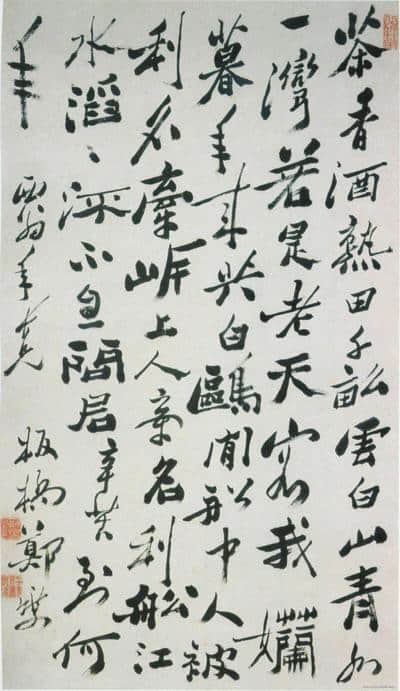 茶香酒熟田千畝雲白山青水
一灣若是老天容我嬾
暮年來共白鷗閒船中人被
利名牽岸上人牽名利船江
水滔〻流不息問君辛苦到何
年
西翁年兄
板橋鄭燮